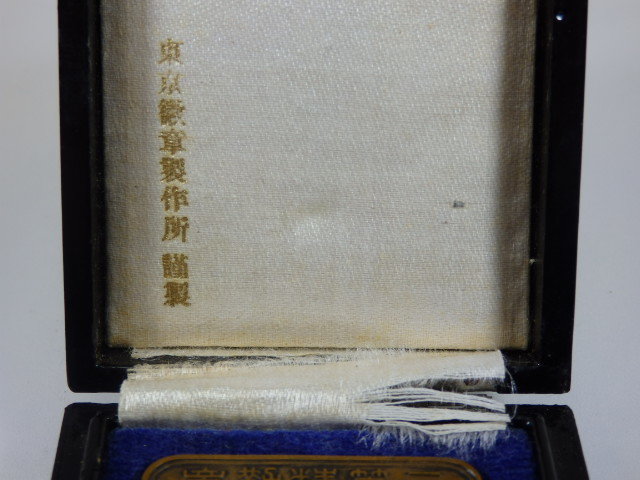 東京徽章製作所 謹製